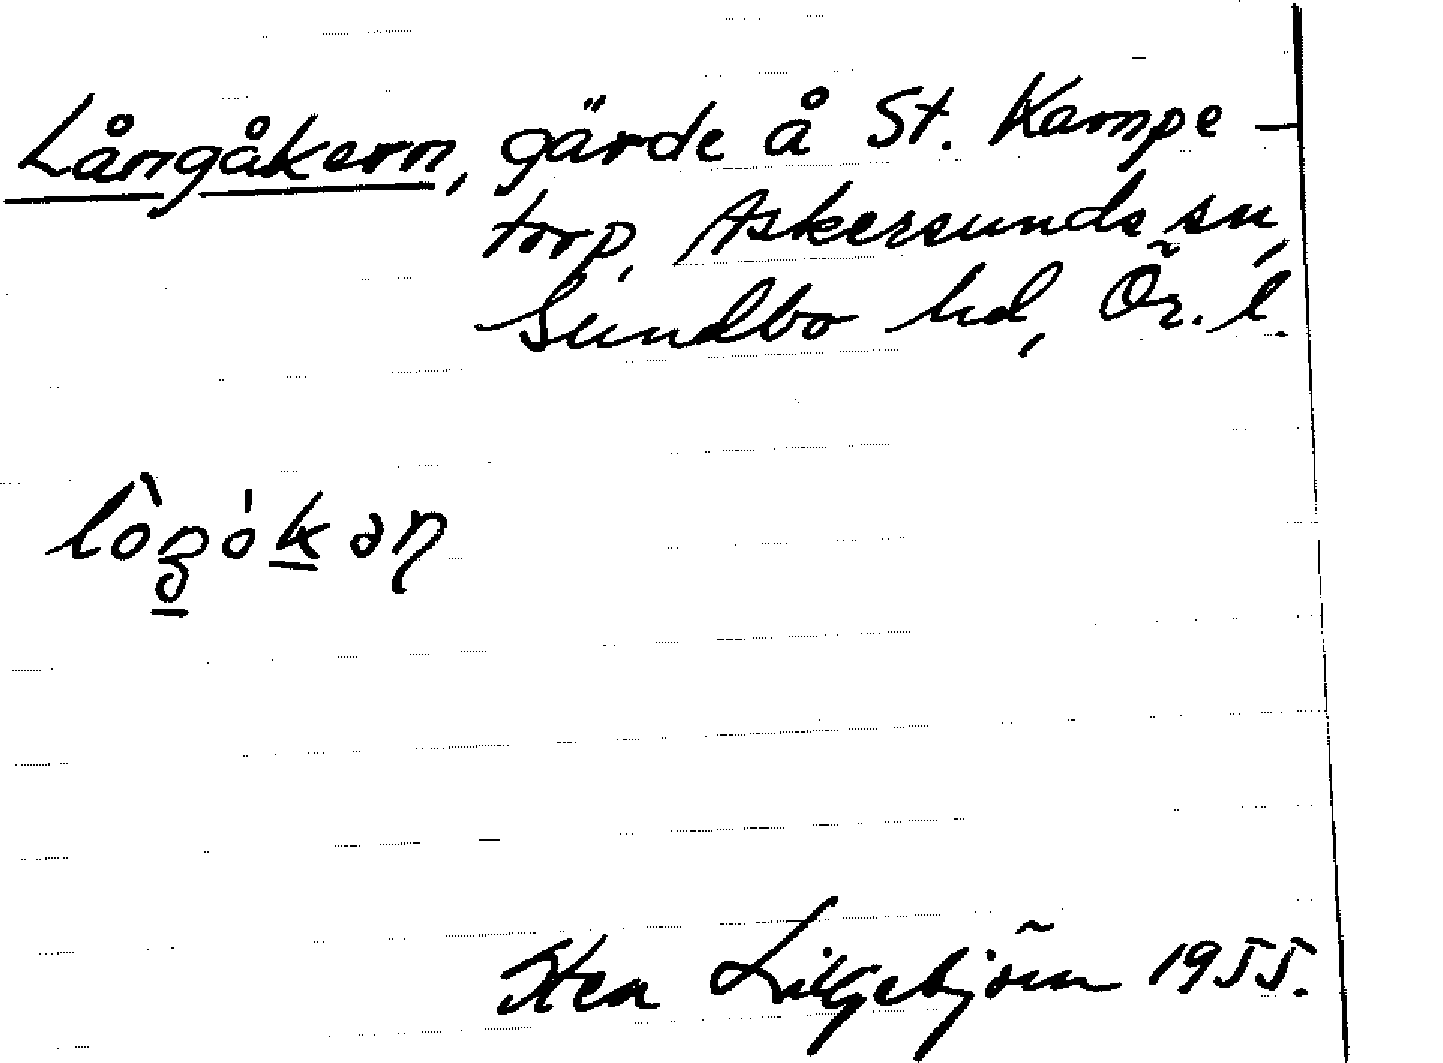 Långåkern, gärde å St. Kampe-
torp, Askersunds sn,
Sundbo hd, Ör. l.
Sten Liljebjörn 1955.